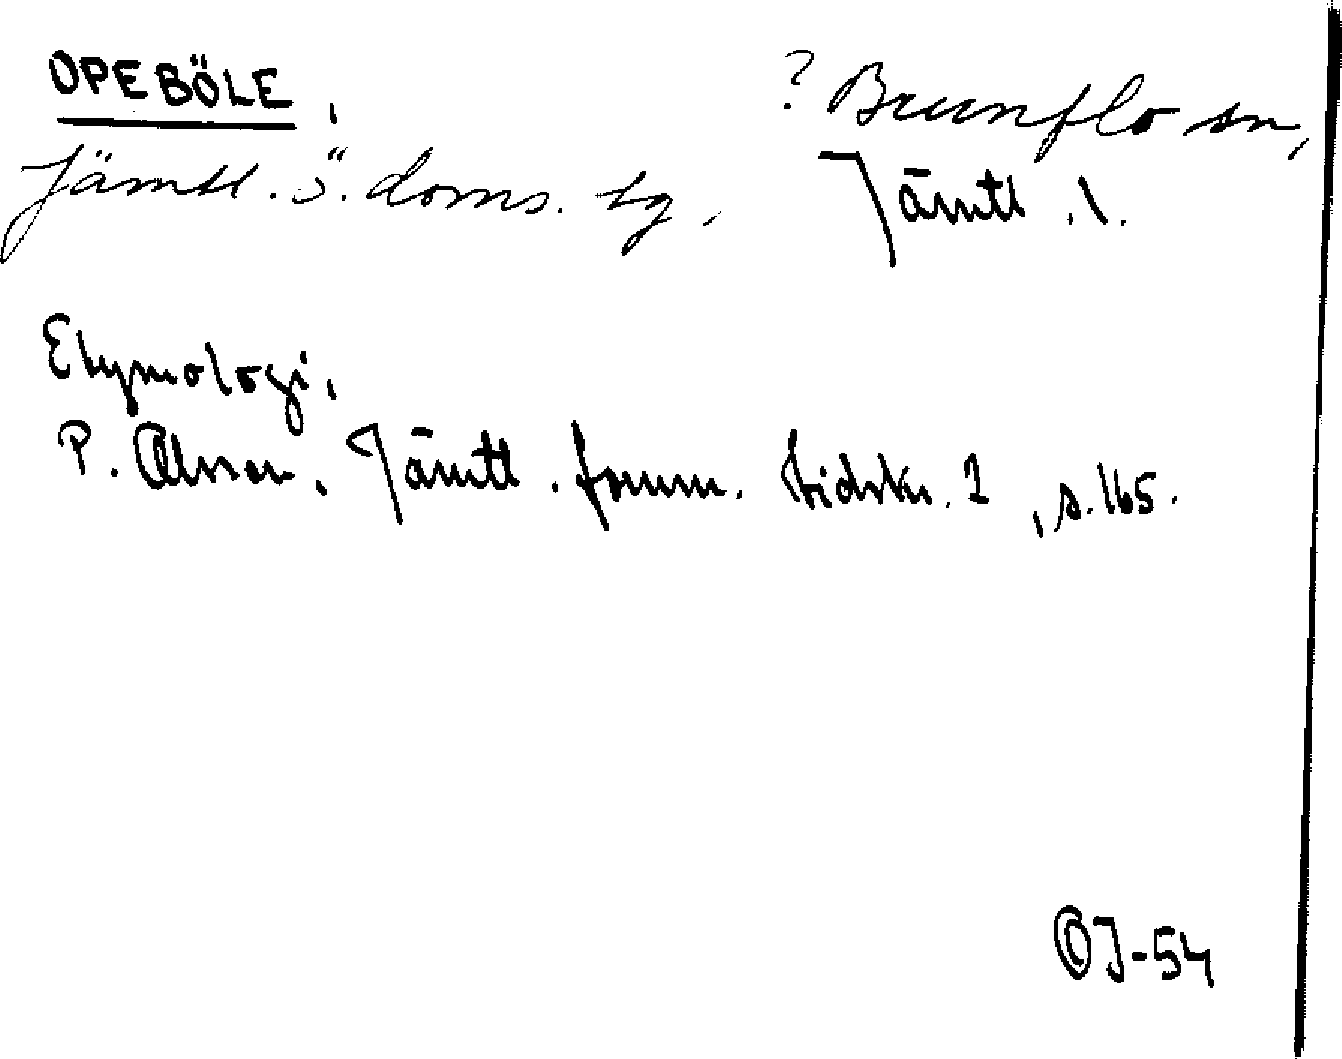 OPEBÖLE,
? Brunflo sn,
Jämtl. ö. doms. tg,
Jämtl. l.
Etymologi,
P. Olsson, Jämtl. fornm. tidskr. 1, s. 165.
OJ-54